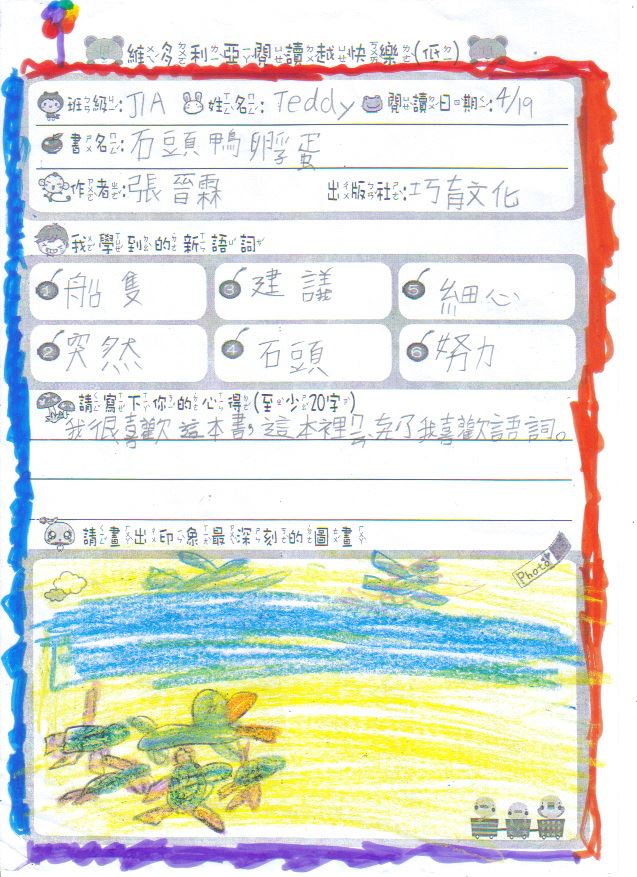 維多利亞閱讀越快樂(低)
班級:J1A 姓名:Teddy 閱讀日期:4/19
書名:石頭鴨孵蛋
作者:張晉霖 出版社:巧育文化
我學到的新語詞
1 船隻 3 建議 5 細心
2 突然 4 石頭 6 努力
請寫下你的心得(至少20字)
我很喜歡這本書,這本裡ㄩㄣ充了我喜歡語詞。
請畫出印象最深刻的圖畫
Photo